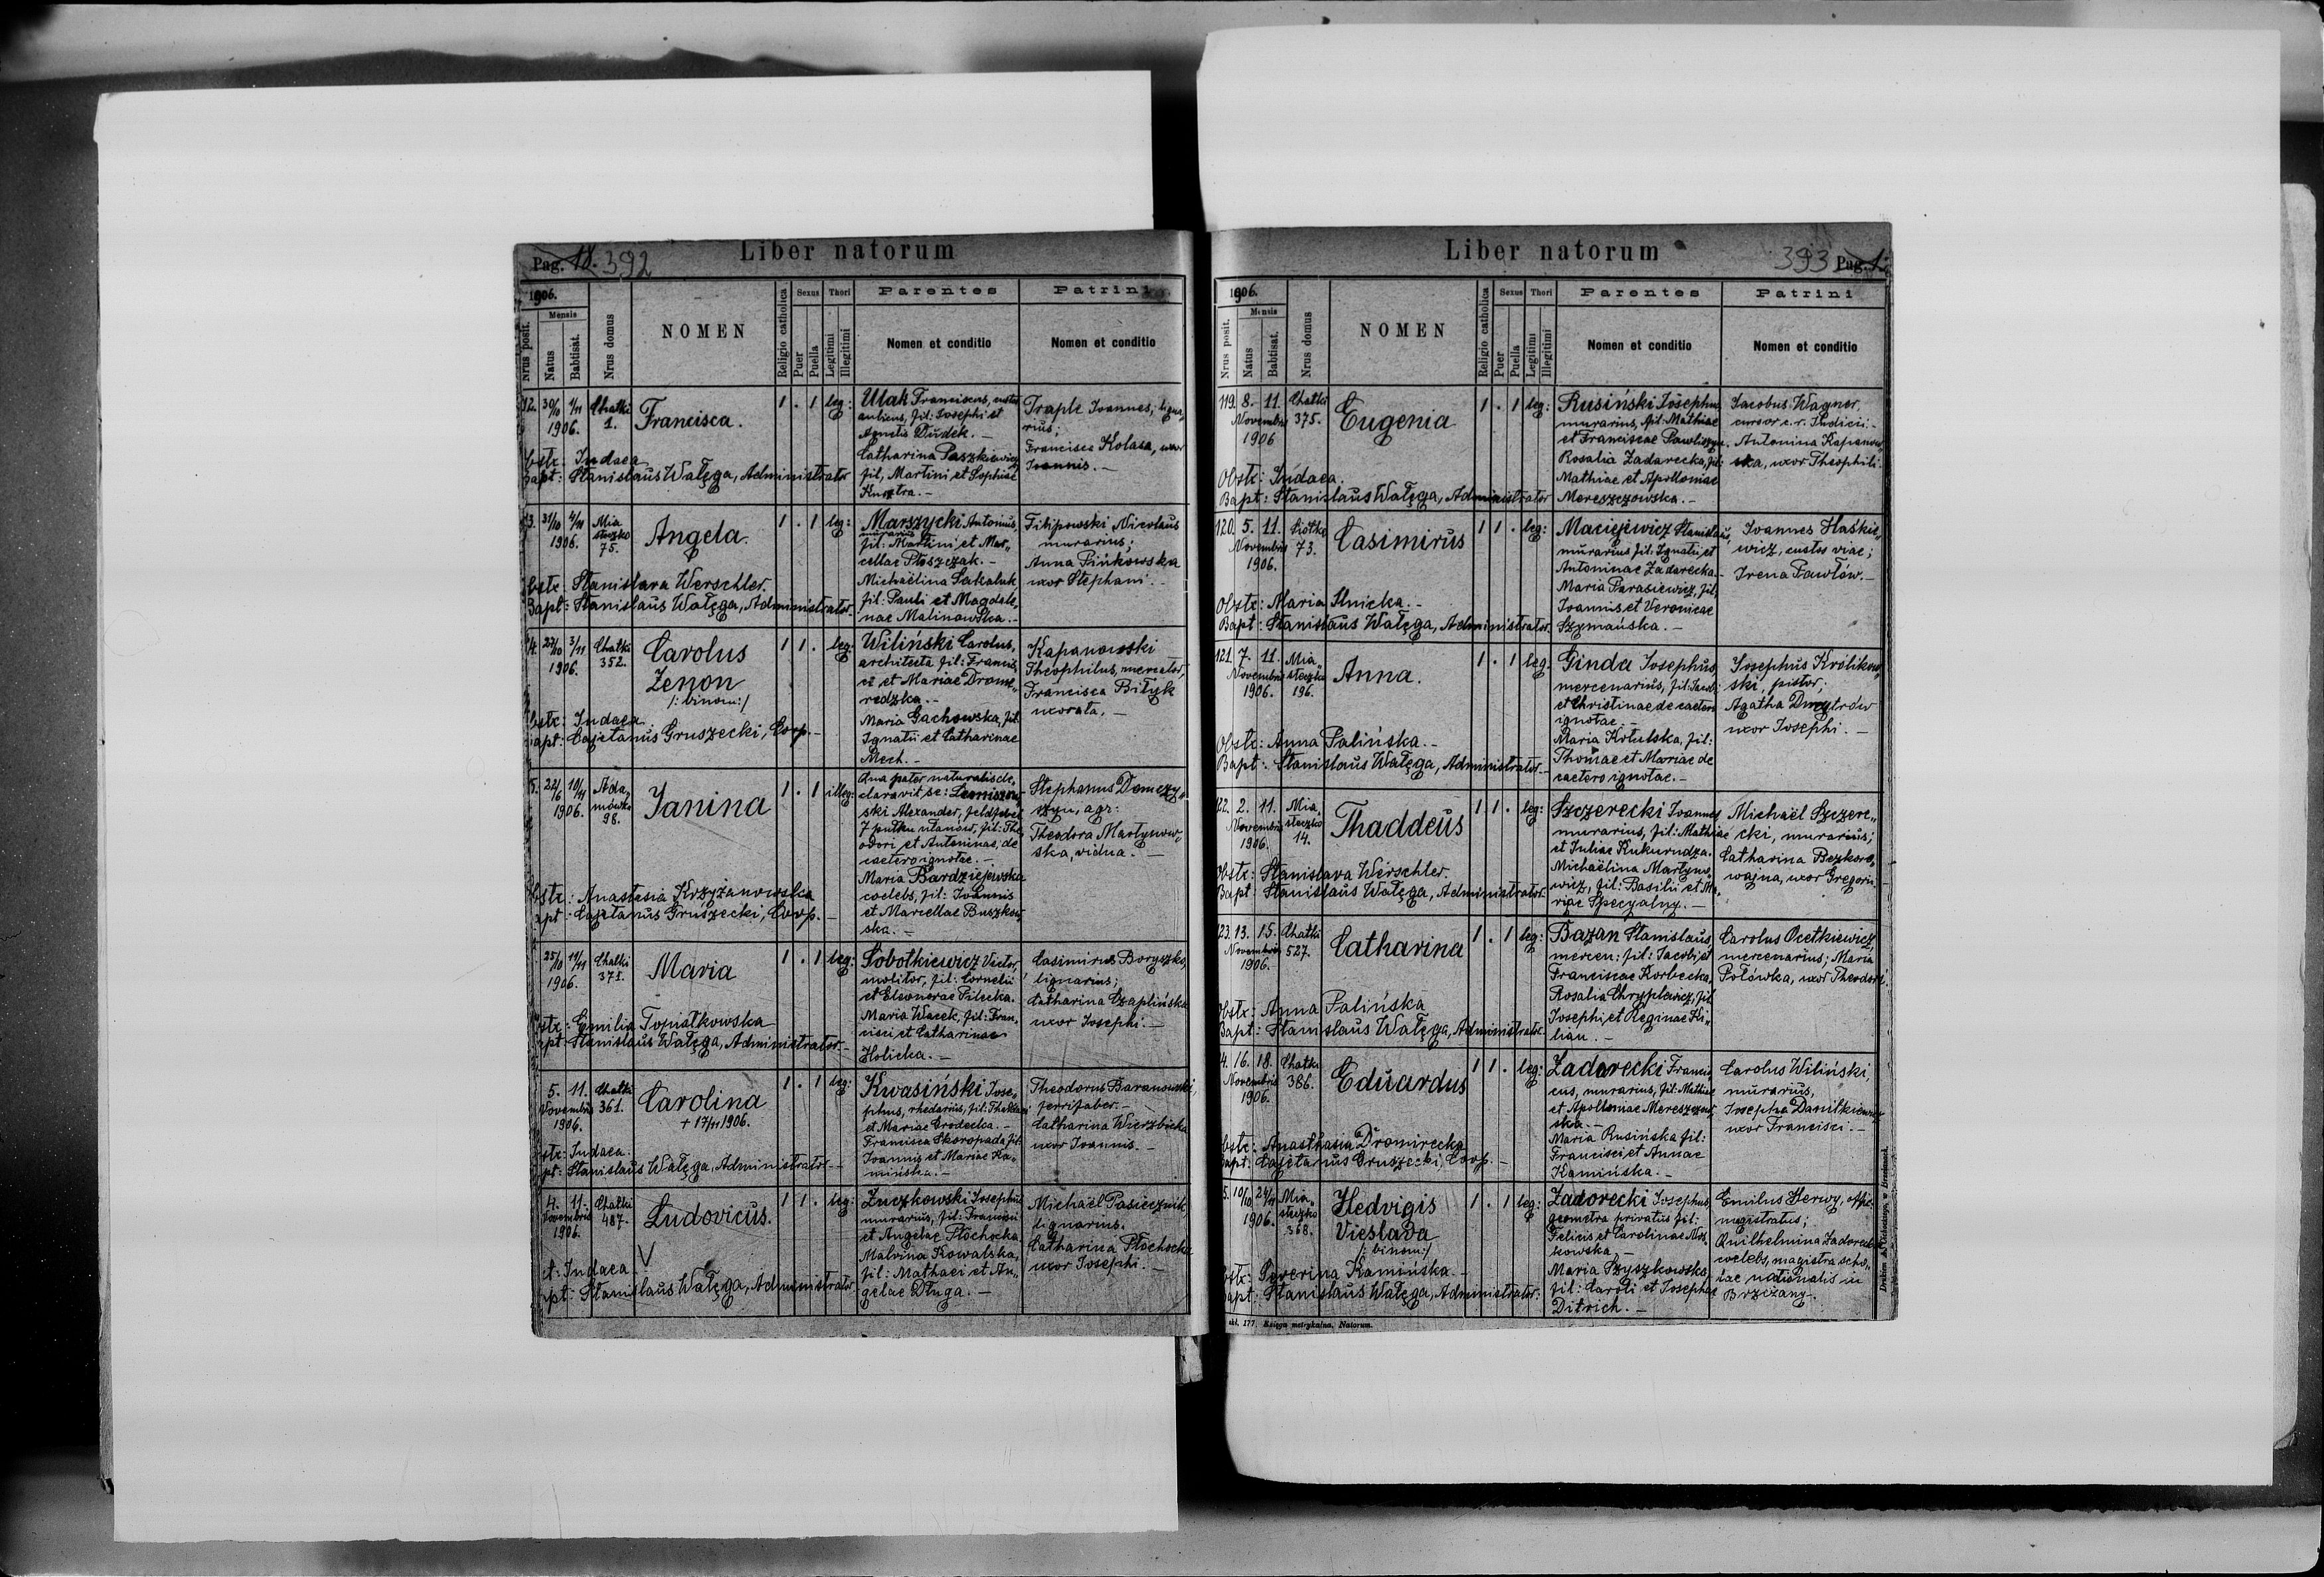 Pag. 18. 392
Liber natorum
1906.
Nrus posit.
Mensis
Natus
Babtisat.
Nrus domus
NOMEN
Religio catholica
Sexus
Puer
Puella
Thori
Legitimi
Illegitimi
Parentes
Nomen et conditio
Patrini
Nomen et conditio
12. 30/10 1/11 1906.
Chatki 1.
Francisca.
1 . 1 leg:
Ulak Franciscus, custos
aulicus, fil: Josephi et
Agnetis Dudek. –
Catharina Paszkiewicz
fil, Martini et Sophiae
Traple Joannes, ligna„
rius;
Francisca Kolasa, uxor
Joannis. –
Obstr: Judaea
Bapt: Stanislaus Wałęga, Administrator
3. 31/10 4/11 1906.
Mia
steczko
75.
Angela.
1 . 1 leg:
Marszycki Antonius,
murarius
fil: Martini et Mar„
cellae Ptoszczak. –
Michaëlina Sakaluk
fil: Pauli et Magdale„
nae Malinowska. –
Filipowski Nicolaus
murarius;
Anna Pińkowska
uxor Stephani. –
Obstr: Stanislava Werschler.
Bapt: Stanislaus Wałęga, Administrator.
4. 27/10 3/11 1906.
Chatki
352.
Carolus
Zenon
/: binom:/
1 1 . leg:
Wiliński Carolus,
architecta fil: Francis
ci et Mariae Drome„
redzka. –
Maria Gachowska, fil:
Ignatii et Catharinae
Mech. –
Kapanowski
Theophilus, mercator,
Francisca Bityk
uxorata. –
Obstr: Judaea
Bapt: Cajetanus Gruszecki, Coop. –
5. 22/6 10/11 1906.
Ada„
mówka
98.
Janina
1 . 1 illeg:
Qua pater naturalis de„
claravit se:
ski Alexander, feldfebel
7 pułku ułanów, fil: The
odori et Antoninae, de
caetero ignotae. –
Maria Bardziejewska
coelebs, fil: Joannis
et Marcellae Buszkow
ska. –
Stephanus Domczy„
szyn, agr:
Theodora Martynow„
ska, vidua. –
Obstr: Anastasia Krzyżanowska
Bapt: Cajetanus Gruszecki, Coop. –
25/10 11/11 1906.
Chatki
371.
Maria
1 . 1 leg:
Sobotkiewicz Victor,
molitor, fil: Cornelii
et Eleonorae Pilecka.
Maria Wacek, fil: Fran„
cisci et Catharinae
Holicka. –
Casimirus Boryszko,
lignarius;
Catharina Czaplińska
uxor Josephi. –
Obstr: Emilia Topiatkowska
Bapt: Stanislaus Wałęga, Administrator. –
5. 11.
Novembris
1906.
Chatki
361.
Carolina
+ 17/11 1906.
1 . 1 leg:
Kwasiński Jose„
phus, rhedarius, fil: Thaddaei
et Mariae Grodecka. –
Francisca Skoropada, fil:
Joannis et Mariae Ka„
mińska. –
Theodorus Baranowski,
ferrifaber. –
Catharina Wierzbicka
uxor Joannis. –
Obstr: Judaea.
Bapt: Stanislaus Wałęga, Administrator. –
4. 11.
Novembris
1906.
Chatki
487.
Ludovicus.
V
1 1 . leg:
Zuczkowski Josephus
murarius, fil: Francisci
et Angelae Płochocka
Malvina Kowalska,
fil: Mathaei et An„
gelae Długa. –
Michaël Pasiecznik,
lignarius.
Catharina Płochocka
uxor Josephi. –
Obstet: Judaea
Bapt: Stanislaus Wałęga, Administrator
Liber natorum
393 Pag. 1
1906.
Nrus posit.
Mensis
Natus
Babtisat.
Nrus domus
NOMEN
Religio catholica
Sexus
Puer
Puella
Thori
Legitimi
Illegitimi
Parentes
Nomen et conditio
Patrini
Nomen et conditio
119. 8. 11.
Novembris
1906
Chatki
375.
Eugenia
1 . 1 leg:
Rusiński Josephus
murarius, fil: Mathiae
et Franciscae Pawliszyn.
Rosalia Zadarecka, fil:
Mathiae et Apolloniae
Mereszczowska. –
Jacobus Wagner,
cursor c. r. Judicii. –
Antonina Kapanow„
ska, uxor Theophili.
Obstr: Judaea.
Bapt: Stanislaus Wałęga, Administrator
120. 5. 11.
Novembris
1906.
Siółko
73.
Casimirus
1 1 . leg:
Maciejewicz Stanislaus,
murarius fil: Ignatii et
Antoninae Zadarecka. –
Maria Parasiewicz, fil:
Joannis et Veronicae
Szymańska. –
Joannes Haśkie„
wicz, custos viae;
Irena Pawłów. –
Obstr: Maria Ilnicka. –
Bapt: Stanislaus Wałęga, Administrator.
121. 7. 11.
Novembris
1906.
Mia„
steczko
196.
Anna.
1 . 1 leg:
Ginda Josephus,
mercenarius, fil: Jacobi
et Christinae de caetero
ignotae. –
Maria Kotulska, fil:
Thomae et Mariae de
caetero ignotae. –
Josephus Królikow„
ski, pistor;
Agatha Dmytrów
uxor Josephi. –
Obstr: Anna Palińska. –
Bapt: Stanislaus Wałęga, Administrator. –
122. 2. 11.
Novembris
1906.
Mia„
steczko
14.
Thaddeus
1 1 . leg:
Szczerecki Joannes
murarius, fil: Mathiae
et Juliae Kukurudza.
Michaëlina Martyno„
wicz, fil: Basilii et Ma„
riae Specyalny. –
Michaël Szczere„
cki, murarius;
Catharina Bezkoro„
wajna, uxor Gregorii.
Obstr: Stanislava Werschler.
Bapt: Stanislaus Wałęga, Administrator. –
123. 13. 15.
Novembris
1906.
Chatki
527.
Catharina
1 . 1 leg:
Bazan Stanislaus,
mercen: fil: Jacobi et
Franciscae Korbecka,
Rosalia Chryplewicz, fil:
Josephi et Reginae Ki„
lian. –
Carolus Ocetkiewicz,
mercenarius; Maria
Połówka, uxor Theodori.
Obstr: Anna Palińska
Bapt: Stanislaus Wałęga, Administrator. –
4. 16. 18.
Novembris
1906.
Chatki
386.
Eduardus
1 1 . leg:
Zadorecki Francis
cus, murarius, fil: Mathiae
et Apolloniae Mereszczow„
ska. –
Maria Rusińska fil:
Francisci et Annae
Kamińska. –
Carolus Wiliński,
murarius,
Josepha Daniłkiewicz
uxor Francisci. –
Obstr: Anasthasia Dromirecka
Bapt: Cajetanus Gruszecki, Coop. –
5. 10/10 24/11 1906.
Mia„
steczko
368.
Hedvigis
Vieslava
/: binom:/
1 . 1 leg:
Zadorecki Josephus
geometra privatus fil:
Felicis et Carolinae Mos„
kowska –
Maria Szyszkowska
fil: Caroli et Josephae
Ditrich. –
Emilus Herwy, offic:
magistratus;
Quilhelmina Zadorecka
coelebs, magistra scho„
lae nationalis in
Brzeżany. –
Obstr: Severina Kamińska. –
Bapt: Stanislaus Wałęga, Administrator.
skł. 177. Księga metrykalna. Natorum.